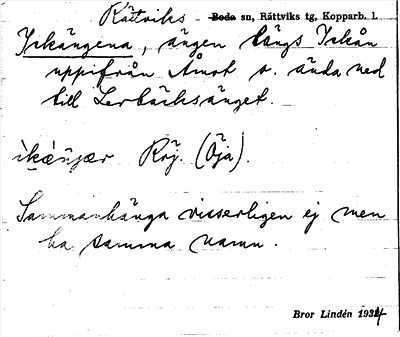 Rättviks - Boda sn, Rättviks tg, Kopparb. l.
Irkängena, ängen längs Irkån
uppifrån Åmot o. ända ned
till Lerbäcksänget.
Röj. (Öja).
Sammanhänga visserligen ej men
ha samma namn.
Bror Lindén 1934